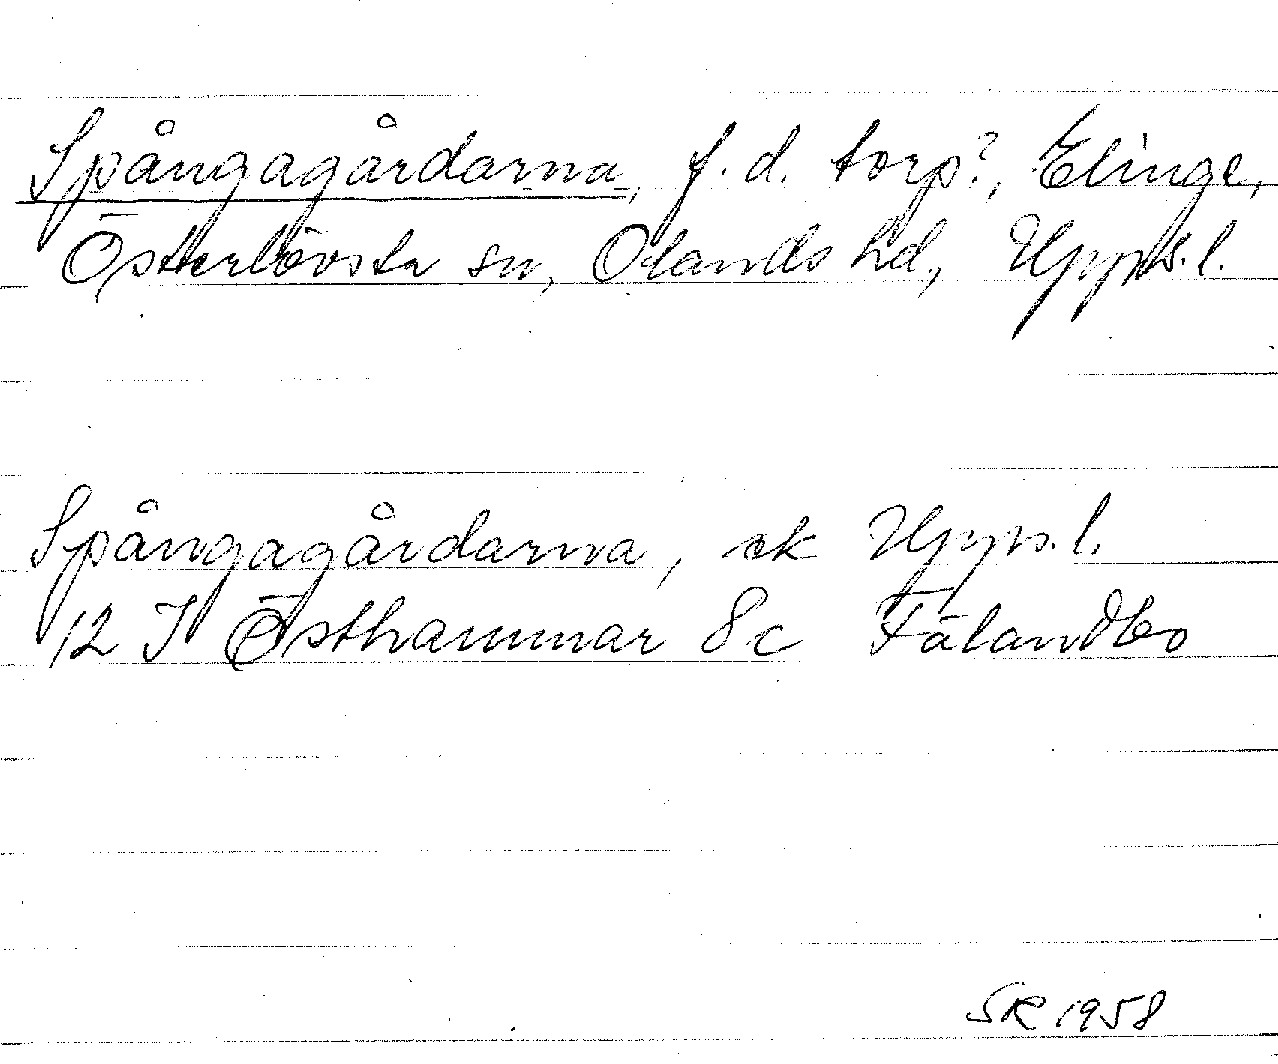 Spångagårdarna, f.d. torp?, Elinge,
Österlövsta sn, Olands hd, Uppl.
Spångagårdarna, ek Uppl.
12 I Östhammar 8c Fälandbo
SR 1958